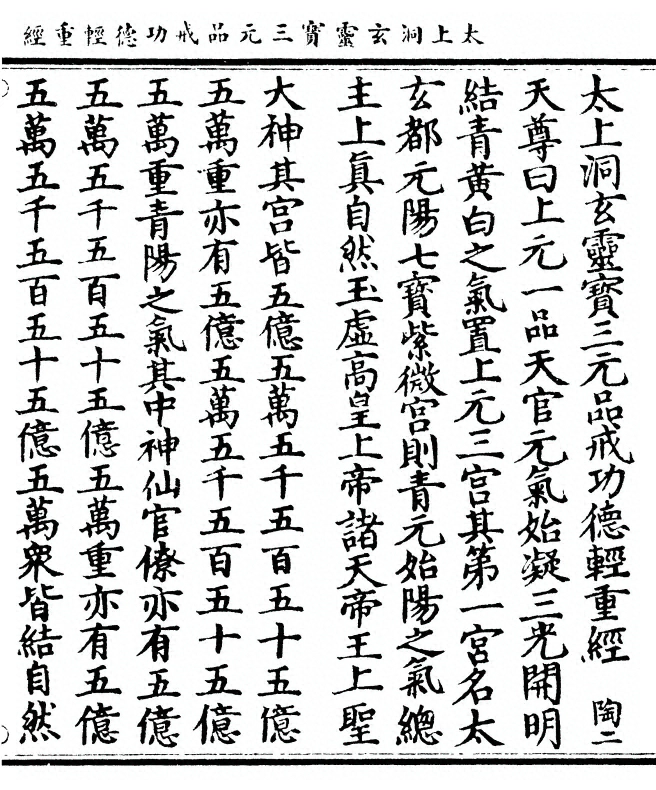 太上洞玄靈寶三元品戒功德輕重經
太上洞玄靈寶三元品戒功德輕重經 陶二
天尊曰上元一品天官元氣始凝三光開明
結青黃白之氣置上元三宮其第一宮名太
玄都元陽七寶紫微宮則青元始陽之氣總
主上真自然玉虛高皇上帝諸天帝王上聖
大神其宮皆五億五萬五千五百五十五億
五萬重亦有五億五萬五千五百五十五億
五萬重青陽之氣其中神仙官僚亦有五億
五萬五千五百五十五億五萬重亦有五億
五萬五千五百五十五億五萬衆皆結自然